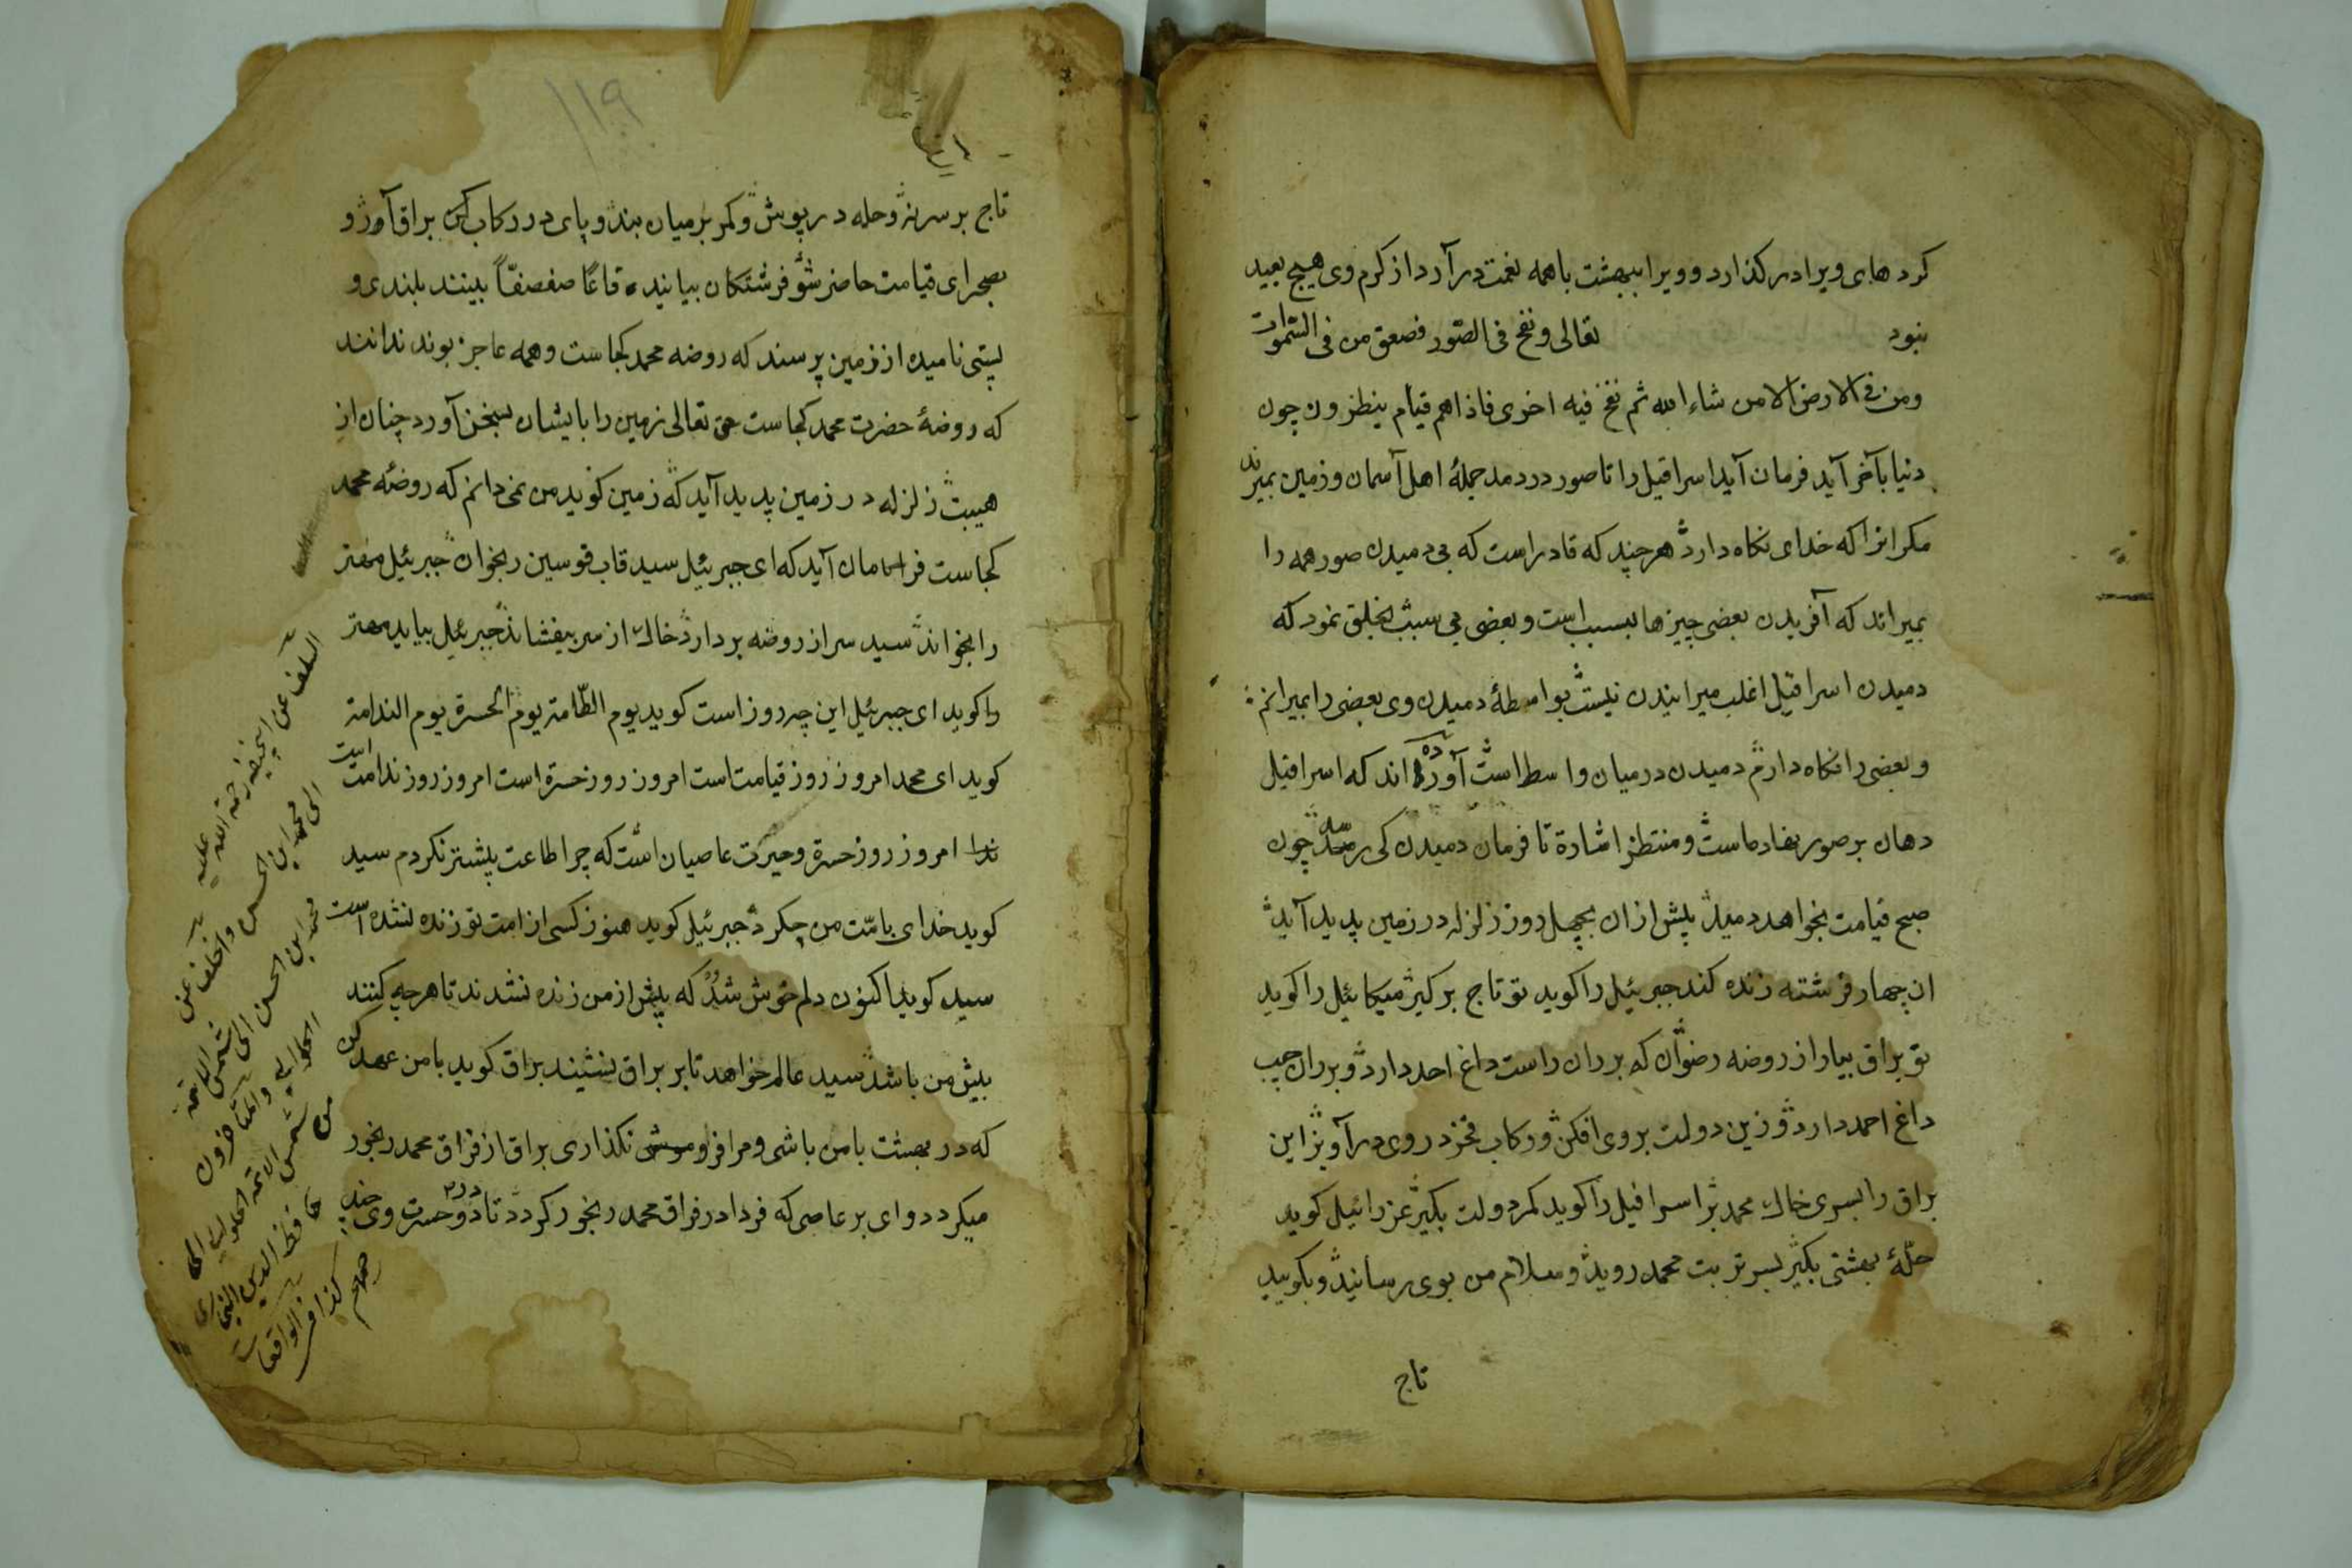 کردهای ویرا در کذارد و ویرا ببهشت باهمه نعمت درآرد از کرم وی هیچ بعید
نبود تعالی و نفخ فی الصّور فصعق من فی السّموات
ومن فی الارض الا من شاء الله ثم نفخ فیه اخری فاذاهم قیام ینظرون چون
دنیا بآخر آید فرمان آید اسرافیل را تا صور دردمد جملهٔ اهل آسمان و زمین بمیرند
مکر انرا که خدای نکاه دارد هرچند که قادر است که بی دمیدن صور همه را
بمیراند که آفریدن بعضی چیزها بسبب است و بعضی بی سبب بخلق نمود که
دمیدن اسرافیل اغلب میرانیدن نیست بواسطهٔ دمیدن وی بعضی را بمیرانم
و بعضی را نکاه دارم دمیدن درمیان واسط است آورده اند که اسرافیل
دهان بر صور نهاده است و منتظر اشارة تا فرمان دمیدن کی رسد چون
صبح قیامت بخواهد دمید پیش ازان بچهل روز زلزله در زمین پدید آید
ان چهار فرشته زنده کند جبرئیل را کوید تو تاج برکیر میکائیل را کوید
تو براق بیار از روضه رضوان که بر ران راست داغ احد دارد و بر ران چپ
داغ احمد دارد و زین دولت بروی افکن و رکاب فخر در وی درآویز این
براق را بسری خاک محمد بر اسرافیل را کوید کمر دولت بکیر عزرائیل کوید
حلّهٔ بهشتی بکیر بسر تربت محمد روید و سلام من بوی رسانید و بکویید
تاج
۱۱۹
تاج بر سر نه و حله در پوش و کمر بر میان بند و پای در رکاب کن براق آور و
بصحرای قیامت حاضر شو فرشتکان بیایند قاعًا صفصفًا بینند بلندی و
پستی نامیده از زمین پرسند که روضه محمد کجاست و همه عاجز بوند ندانند
که روضهٔ حضرت محمد کجاست حق تعالی زمین را با یشان بسخن آورد چنان از
هیبت زلزله در زمین پدید آید که زمین کوید من نمی دانم که روضهٔ محمد
کجاست فرمان آید که ای جبرئیل سید قاب قوسین را بخوان جبرئیل مهتر
را بخواند سید سر از روضه بردارد خاک از سر بیفشاند جبرئیل بیاید مهتر
را کوید ای جبرئیل این چه روز است کوید یوم الطّامة یوم الحسرة یوم الندامة
کوید ای محمد امروز روز قیامت است امروز روز حسرة است امروز روز ندامت است
امروز روز حسرة و حیرت عاصیان است که چرا طاعت پیشتر نکردم سید
کوید خدای باامّت من چکرد جبرئیل کوید هنوز کسی از امت تو زنده نشده است
سید کوید اکنون دلم خوش شد که پیش از من زنده نشدند تا هرچه کنند
پیش من باشد سید عالم خواهد تا بر براق نشیند براق کوید با من عهد کن
که در بهشت با من باشی و مرا فروموش نکذاری براق از فراق محمد رنجور
میکردد وای بر عاصی که فردا در فراق محمد رنجور کردد تا در دوحسرت وی
السلف عن ابی حنیفه رحمة الله علیه
الی محمد ابن الحسن والخلف عن
محمد ابن الحسن الی شمس الائمة
الحلوانی والمتأخرون من
شمس الائمة الحلوانی الی
حافظ الدین البخاری
کذا فی الواقعات